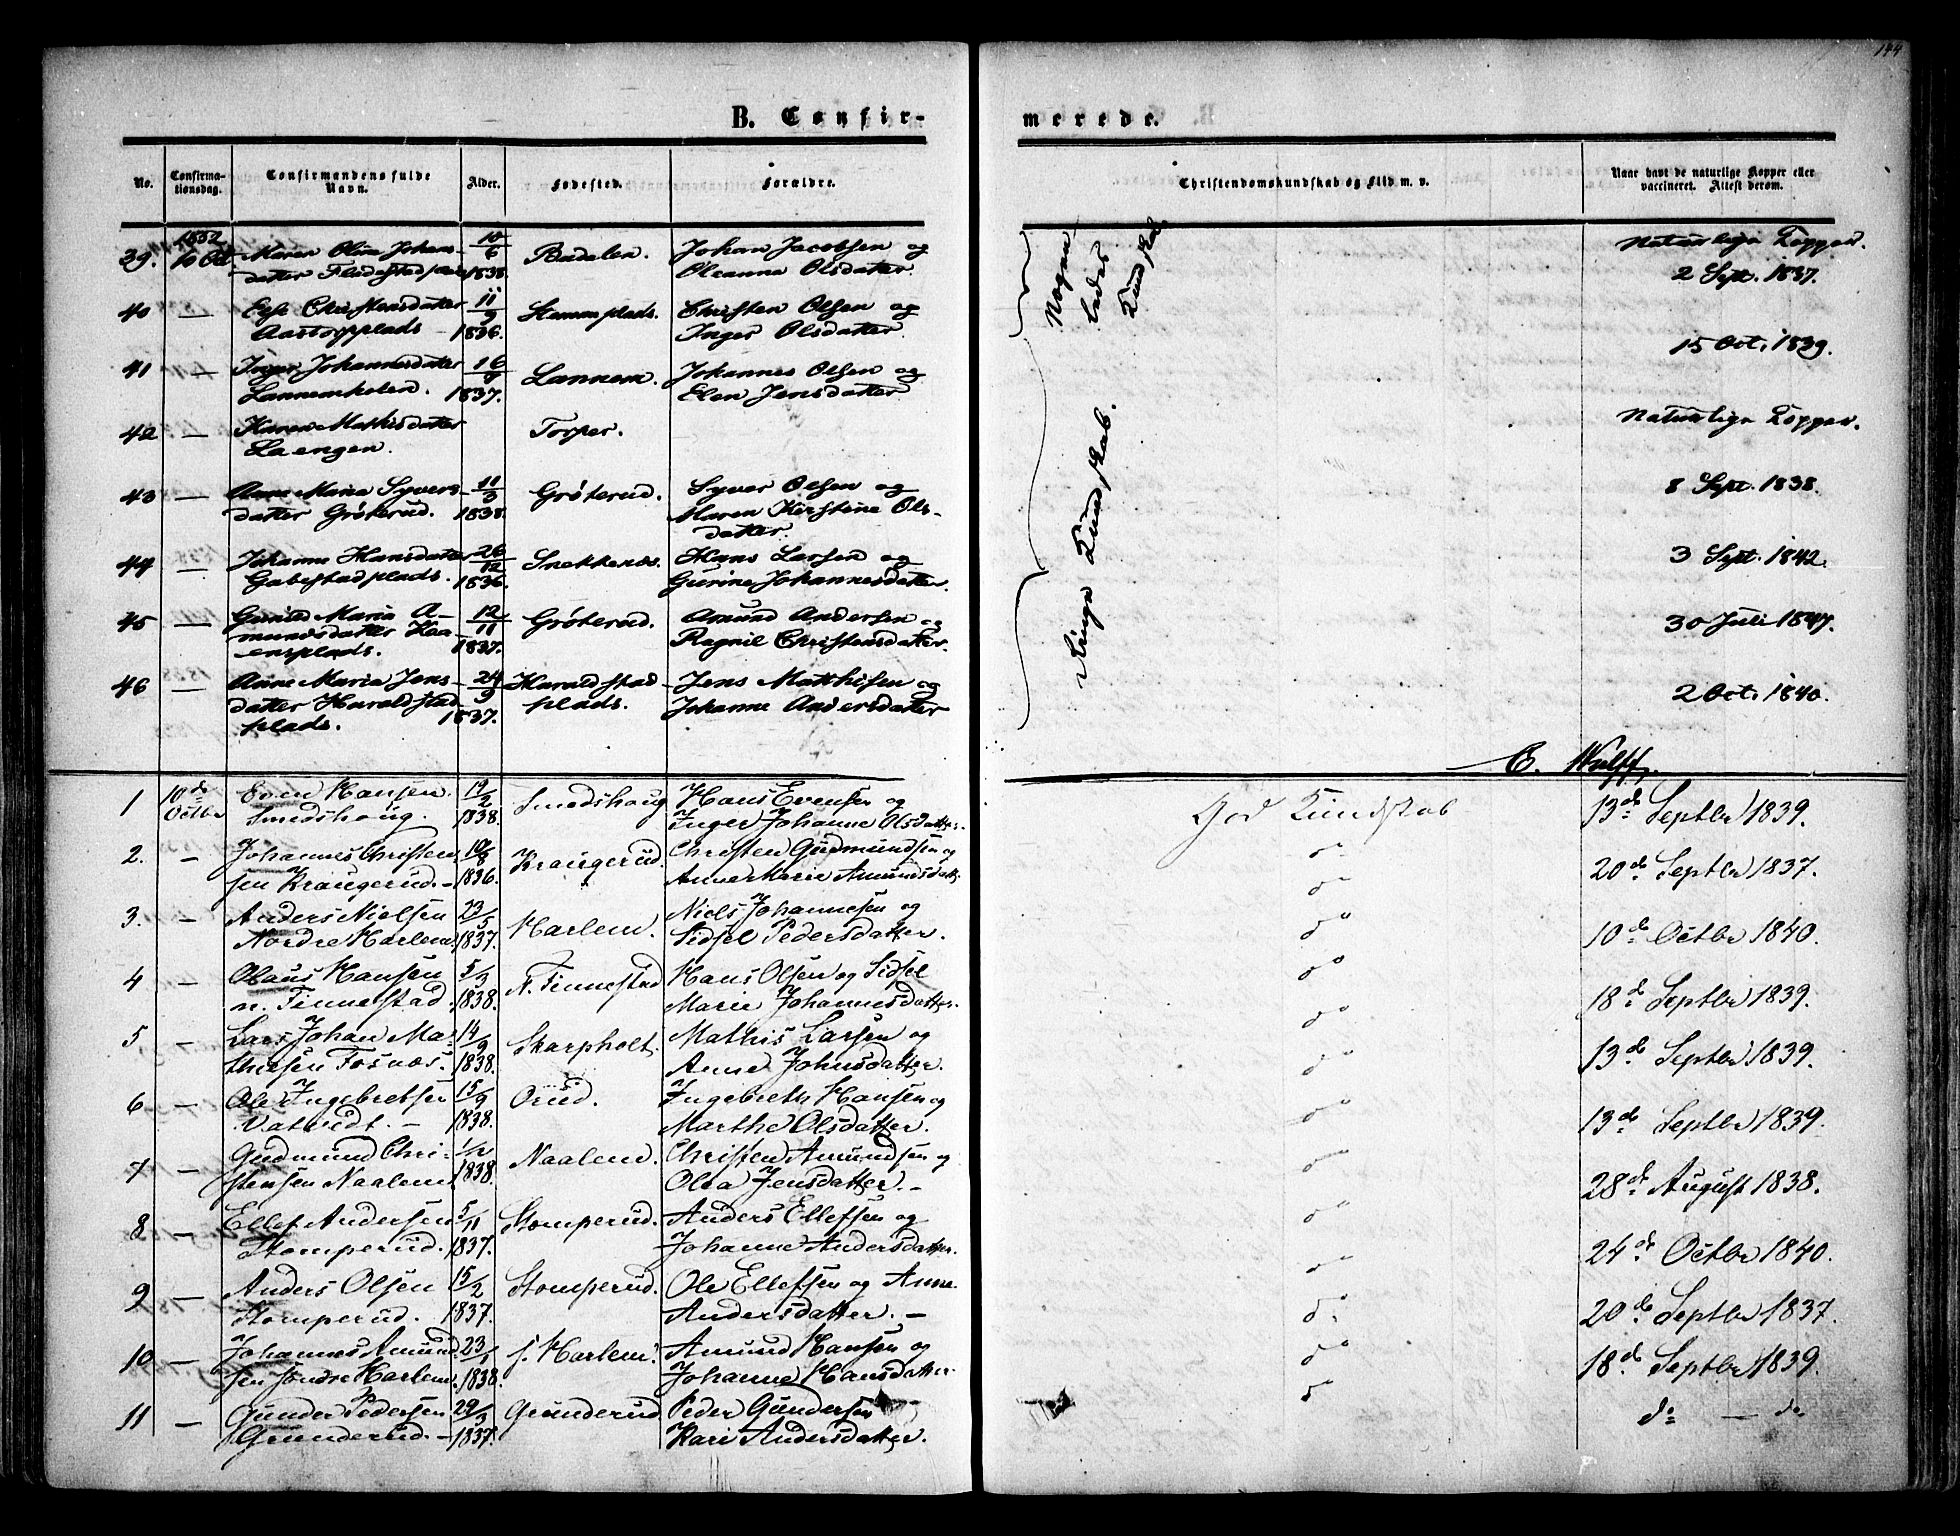 144
B. Confir-
merede.
No.
Confirma-
tionsdag.
Confirmandens fulde
Navn.
Alder.
Fødested.
Forældre.
Christendomskundskab og Flid m. v.
Naar havt de naturlige Kopper eller
vaccineret. Attest derom.
39. 1852 10 Oct Maren Olia Johans- 10/6 Badalen. Johan Jacobsen og
datter 1838. Oleanne Olsdatter.
Nogen-
ledes
Kundskab
Naturlige Kopper.
2 Sept. 1837.
40 — Christensdatter 11/9 Christen Olsen og
Aastorpplads — 1836. Inger Olsdatter.
15 Oct. 1839.
41 — Inger Johannesdatter 16 Lannem. Johannes Olsen og
Lannemholen. 1837. Elen Jensdatter
42 — Karen Mathisdatter Torper.
Laengen.
Naturlige Kopper.
ringe Kundskab.
43 — Anne Maria Syvers- 11/3 Grøterud. Syver Olsen og
datter Grøterud. 1838. Maren Kirstine Ols-
datter.
8 Sept. 1838.
44 — Johanne Hansdatter 26/12 Snekkenæs. Hans Larsen og
Gabestadplads. 1836. Gurine Johannesdatter.
3 Sept. 1842.
45 — Gunild Maria A- 12/11 Grøterud. Amund Andersen og
mundsdatter Haa- 1837. Ragnil Christensdatter.
ensplads.
30 Juli 1847.
46 — Anne Maria Jens- 24/9 Haraldstad Jens Matthisen og
datter Haraldstad 1837. plads. Johanne Andersdatter
plads.
2 Oct. 1840.
C. Wulff.
1 10de Octbr Even Hansen 19/2 Smedshoug Hans Evensen og
Smedshoug. 1838. Inger Johanne Olsdatter.
God Kundskab 13de Septbr 1839.
2. — Johannes Christen- 19/8 Kraugerud Christen Gudmundsen og
sen Kraugerud. — 1836. Anne Marie Amundsdatt.
do 20de Septbr 1837.
3. — Anders Nielsen 23/5 Harlem. Niels Johannesen og
Nordre Harlem. 1837. Sidsel Pedersdatter.
do 10de Octbr 1840.
4 — Olaus Hansen 5/3 N. Finnestad Hans Olsen og Sidsel
n. Finnestad. 1838. Marie Johannesdatter.
do 18de Septbr 1839.
5 — Lars Johan Ma- 14/9 Skarpholt. Mathis Larsen og
thisen Fosnæs. 1838. Anne Johnsdatter.
do 13de Septbr 1839.
6 — Ole Ingebretsen 15/9 Orud. Ingebreth Hansen og
Vatvedt. — 1838. Marthe Olsdatter.
do 13de Septbr 1839.
7 — Gudmund Chri- 1838. Naalem. Christen Amundsen og
stensen Naalem. Olea Jensdatter. —
do 28de August 1838.
8 — Ellef Andersen 5/11 Stomperud. Anders Ellefsen og
Stomperud. 1837. Johanne Andersdatter.
do 24de Octbr 1840.
9 — Anders Olsen 15/2 Stomperud. Ole Ellefsen og Anne
Stomperud. 1837. Andersdatter. —
do 20de Septbr 1837.
10 — Johannes Amund- 23/1 s. Harlem. Amund Hansen og
sen søndre Harlem. 1838. Johanne Hansdatter
do 18de Septbr 1839.
11 — Gunder Pedersen 29/3 Grunderud Peder Gundersen
Grunderud. — 1837. Kari Andersdatter.
do do — do